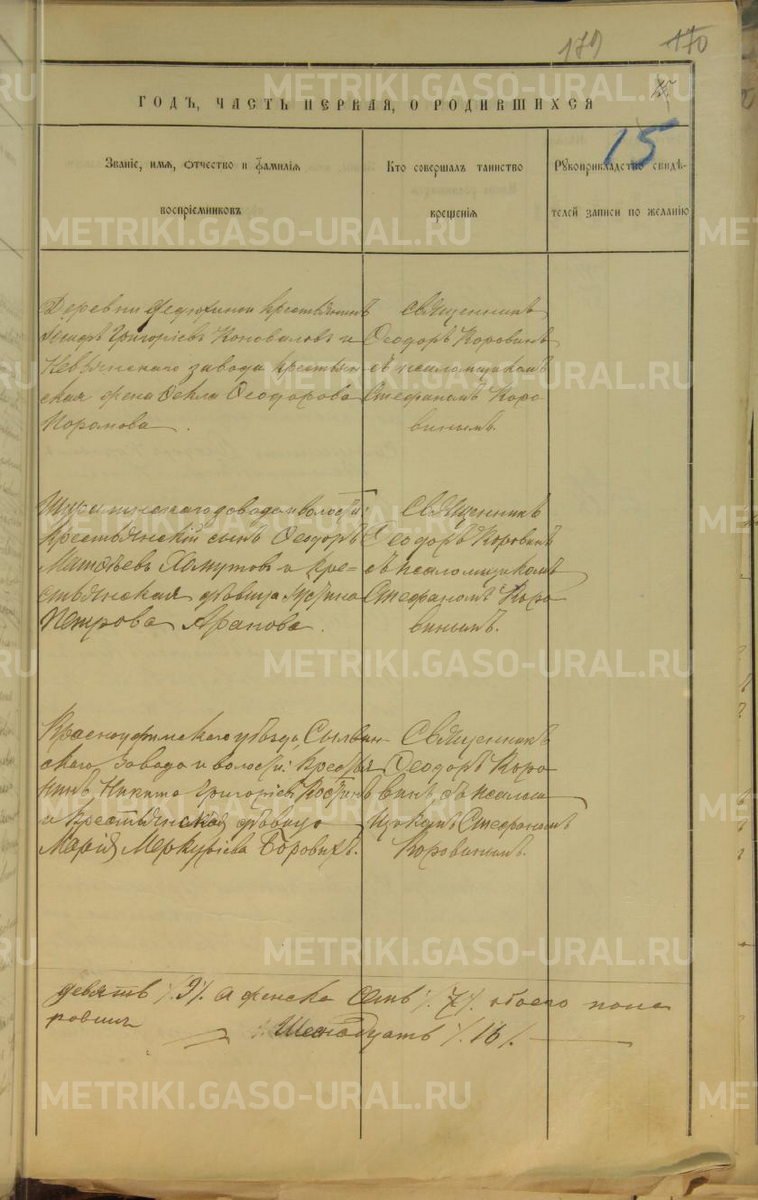 179 170
ГОДЪ, ЧАСТЬ ПЕРВАЯ, О РОДИВШИХСЯ
15
Званіе, имя, отчество и фамилія
воспріемниковъ
Кто совершалъ таинство
крещенія
Рукоприкладство свидѣ-
телей записи по желанію
Деревни крестьянинъ
Григоріевъ Коноваловъ и
завода крестьян
ская жена Ѳекла Ѳеодорова
Священникъ
Ѳеодоръ Коровинъ
съ псаломщикомъ
Стефаномъ Коро
винымъ.
завода и волости:
Крестьянскій сынъ Ѳеодоръ
Матѳѣевъ Хомутовъ и кре-
стьянская дѣвица Устина
Петрова Арапова.
Священникъ
Ѳеодоръ Коровинъ
съ псаломщикомъ
Стефаномъ Коро
винымъ.
Красноуфимскаго уѣзда, Сылвин-
скаго завода и волости: Крестья
нинъ Никита Григоріевъ
и Крестьянская дѣвица
Марія Меркуріева Боровихъ.
Священникъ
Ѳеодоръ Коро
винъ съ псалом
щикомъ Стефаномъ
Коровинымъ.
девять /9/. а женска семь /7/. обоего пола
Шеснадцать /16/.
METRIKI.GASO-URAL.RU